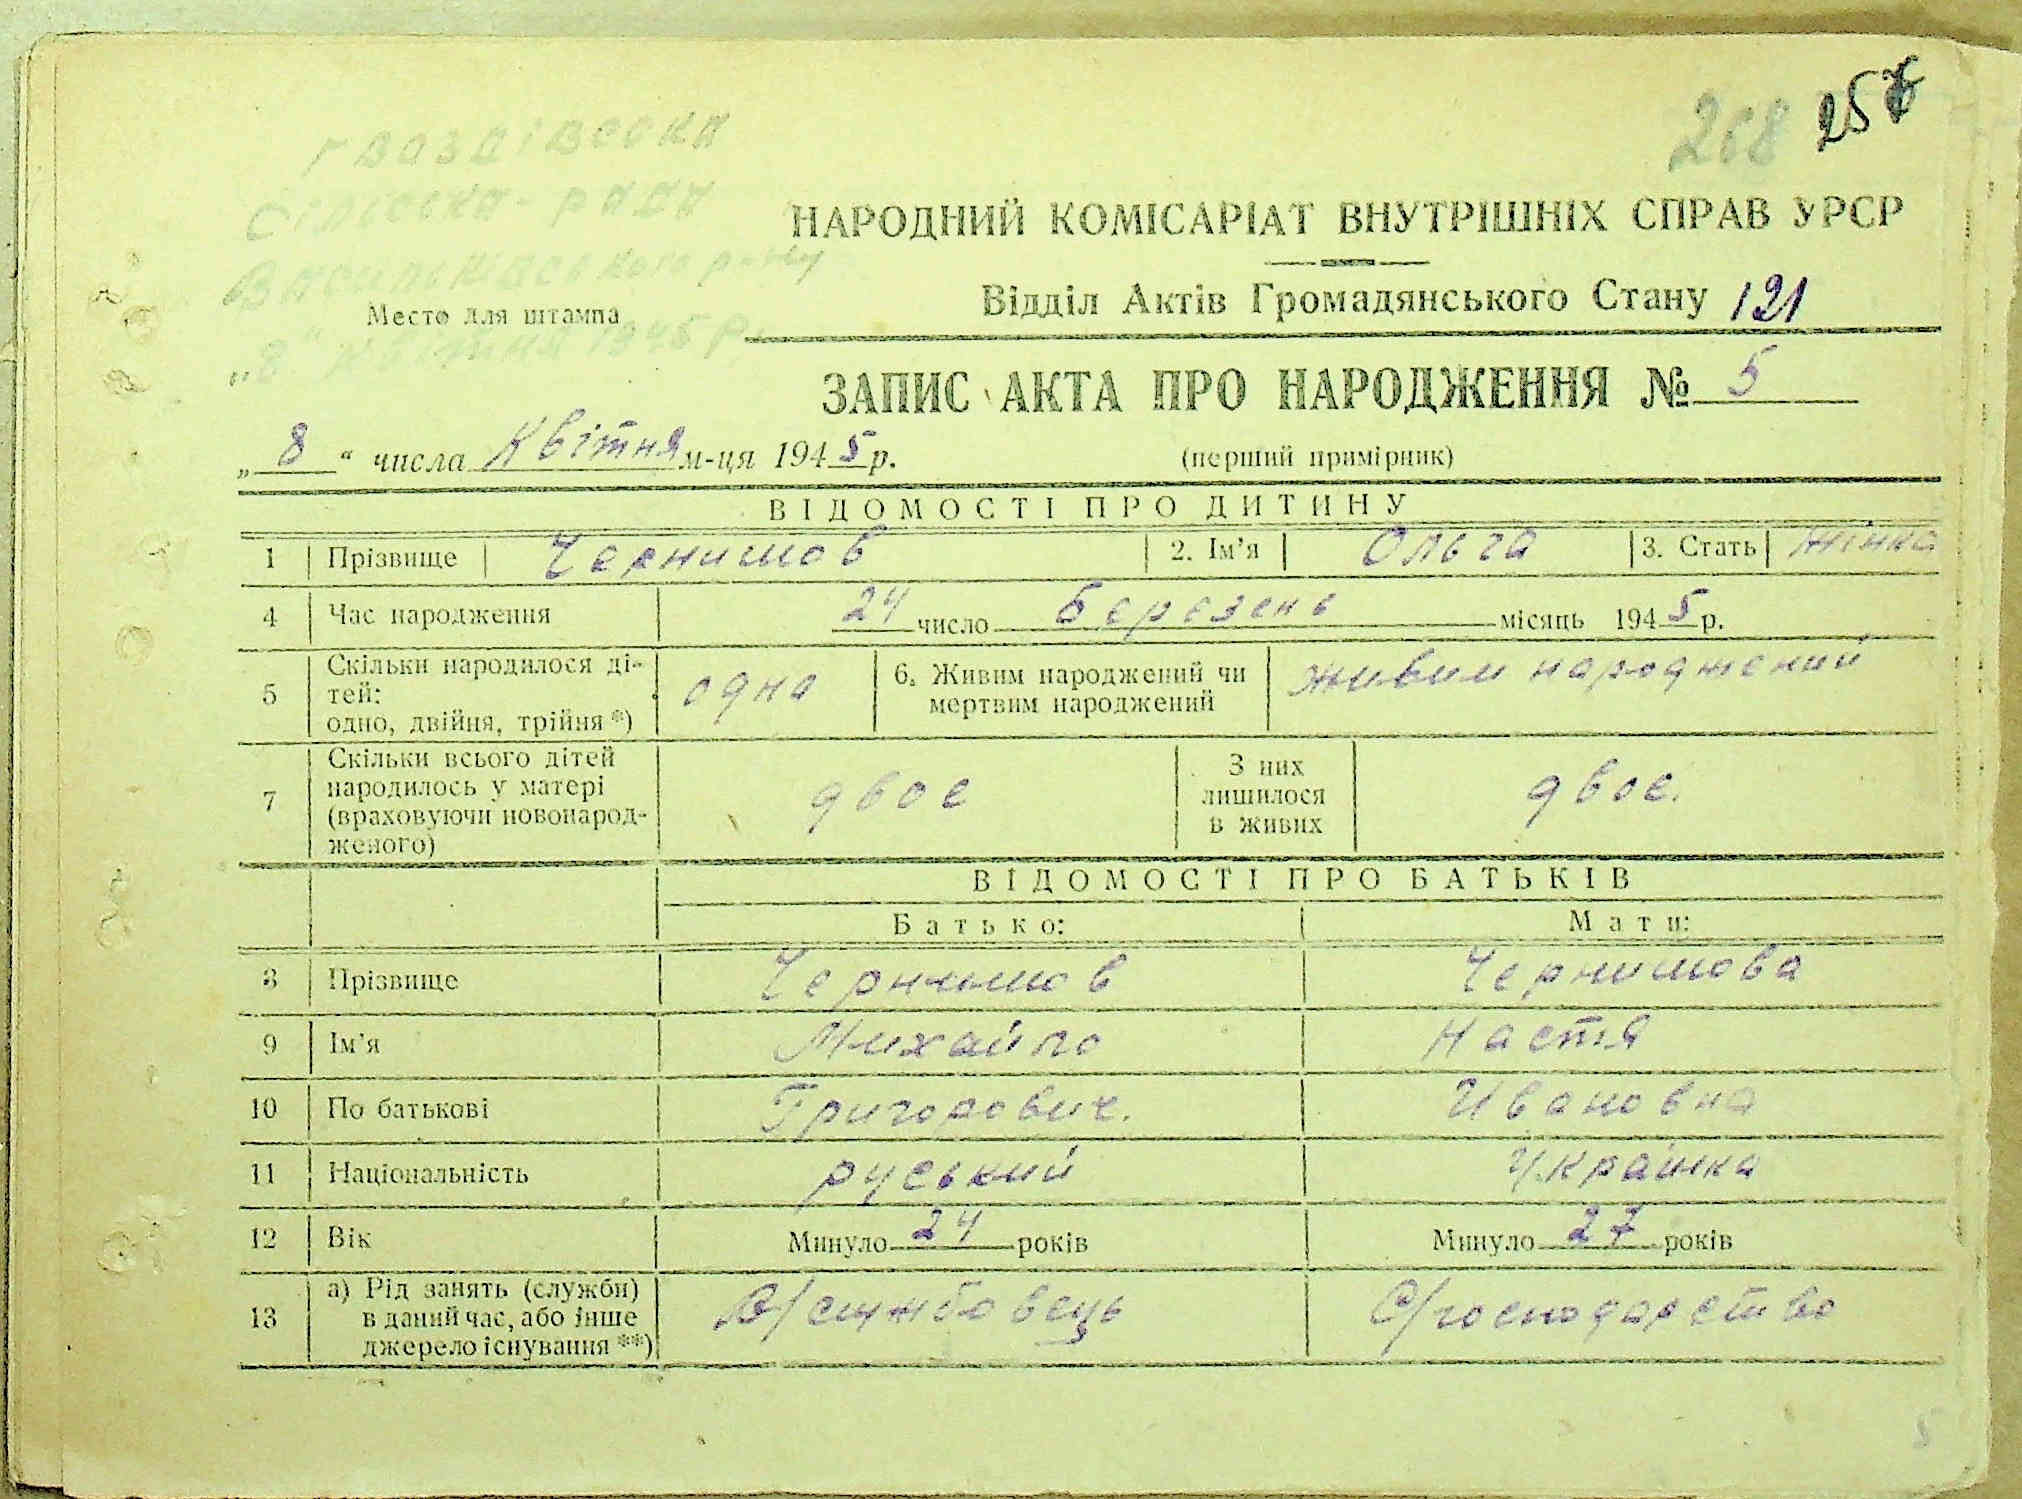 268 257
Гваздівська
Сільська рада
Васильківського р-ну
„8“ квітня 1945 р.
Место для штампа
НАРОДНИЙ КОМІСАРІАТ ВНУТРІШНІХ СПРАВ УРСР
Відділ Актів Громадянського Стану 121
ЗАПИС АКТА ПРО НАРОДЖЕННЯ № 5
„8“ числа Квітня м-ця 1945 р. (перший примірник)
ВІДОМОСТІ ПРО ДИТИНУ
1 Прізвище Чернишов 2. Ім’я Ольга 3. Стать Жінка
4 Час народження 24 число Березень місяць 1945 р.
5 Скільки народилося ді-
тей:
одно, двійня, трійня *) одна 6. Живим народжений чи
мертвим народжений живим народжений
7 Скільки всього дітей
народилось у матері
(враховуючи новонарод-
женого) двоє З них
лишилося
в живих двоє.
ВІДОМОСТІ ПРО БАТЬКІВ
Батько: Мати:
8 Прізвище Чернишов Чернишова
9 Ім’я Михайло Настя
10 По батькові Григорович. Ивановна
11 Національність руський Украінка
12 Вік Минуло 24 років Минуло 27 років
13 а) Рід занять (служби)
в даний час, або інше
джерело існування **) В/службовець С/господарство
5